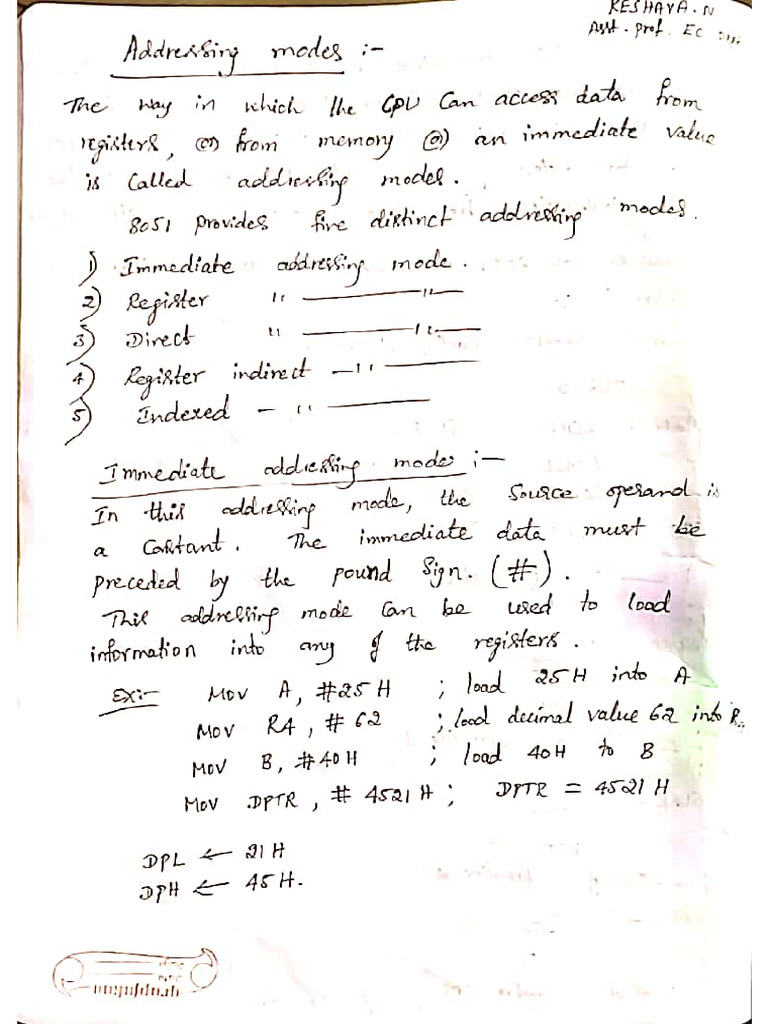 KESHAVA. N
Asst. prof. EC
Addressing modes :-
The way in which the CPU Can access data from
registers, (or) from memory (or) an immediate value
is Called addressing modes.
8051 provides five distinct addressing modes.
1) Immediate addressing mode.
2) Register " — "
3) Direct " — " —
4) Register indirect — " —
5) Indexed — " —
Immediate addressing modes :-
In this addressing mode, the Source operand is
a Constant. The immediate data must be
preceded by the pound Sign. (#).
This addressing mode Can be used to load
information into any of the registers.
Ex:- Mov A, #25H ; load 25H into A
Mov R4, #62 ; load decimal value 62 into R
Mov B, #40H ; load 40H to B
Mov DPTR, # 4521H ; DPTR = 4521H
DPL ← 21H
DPH ← 45H.